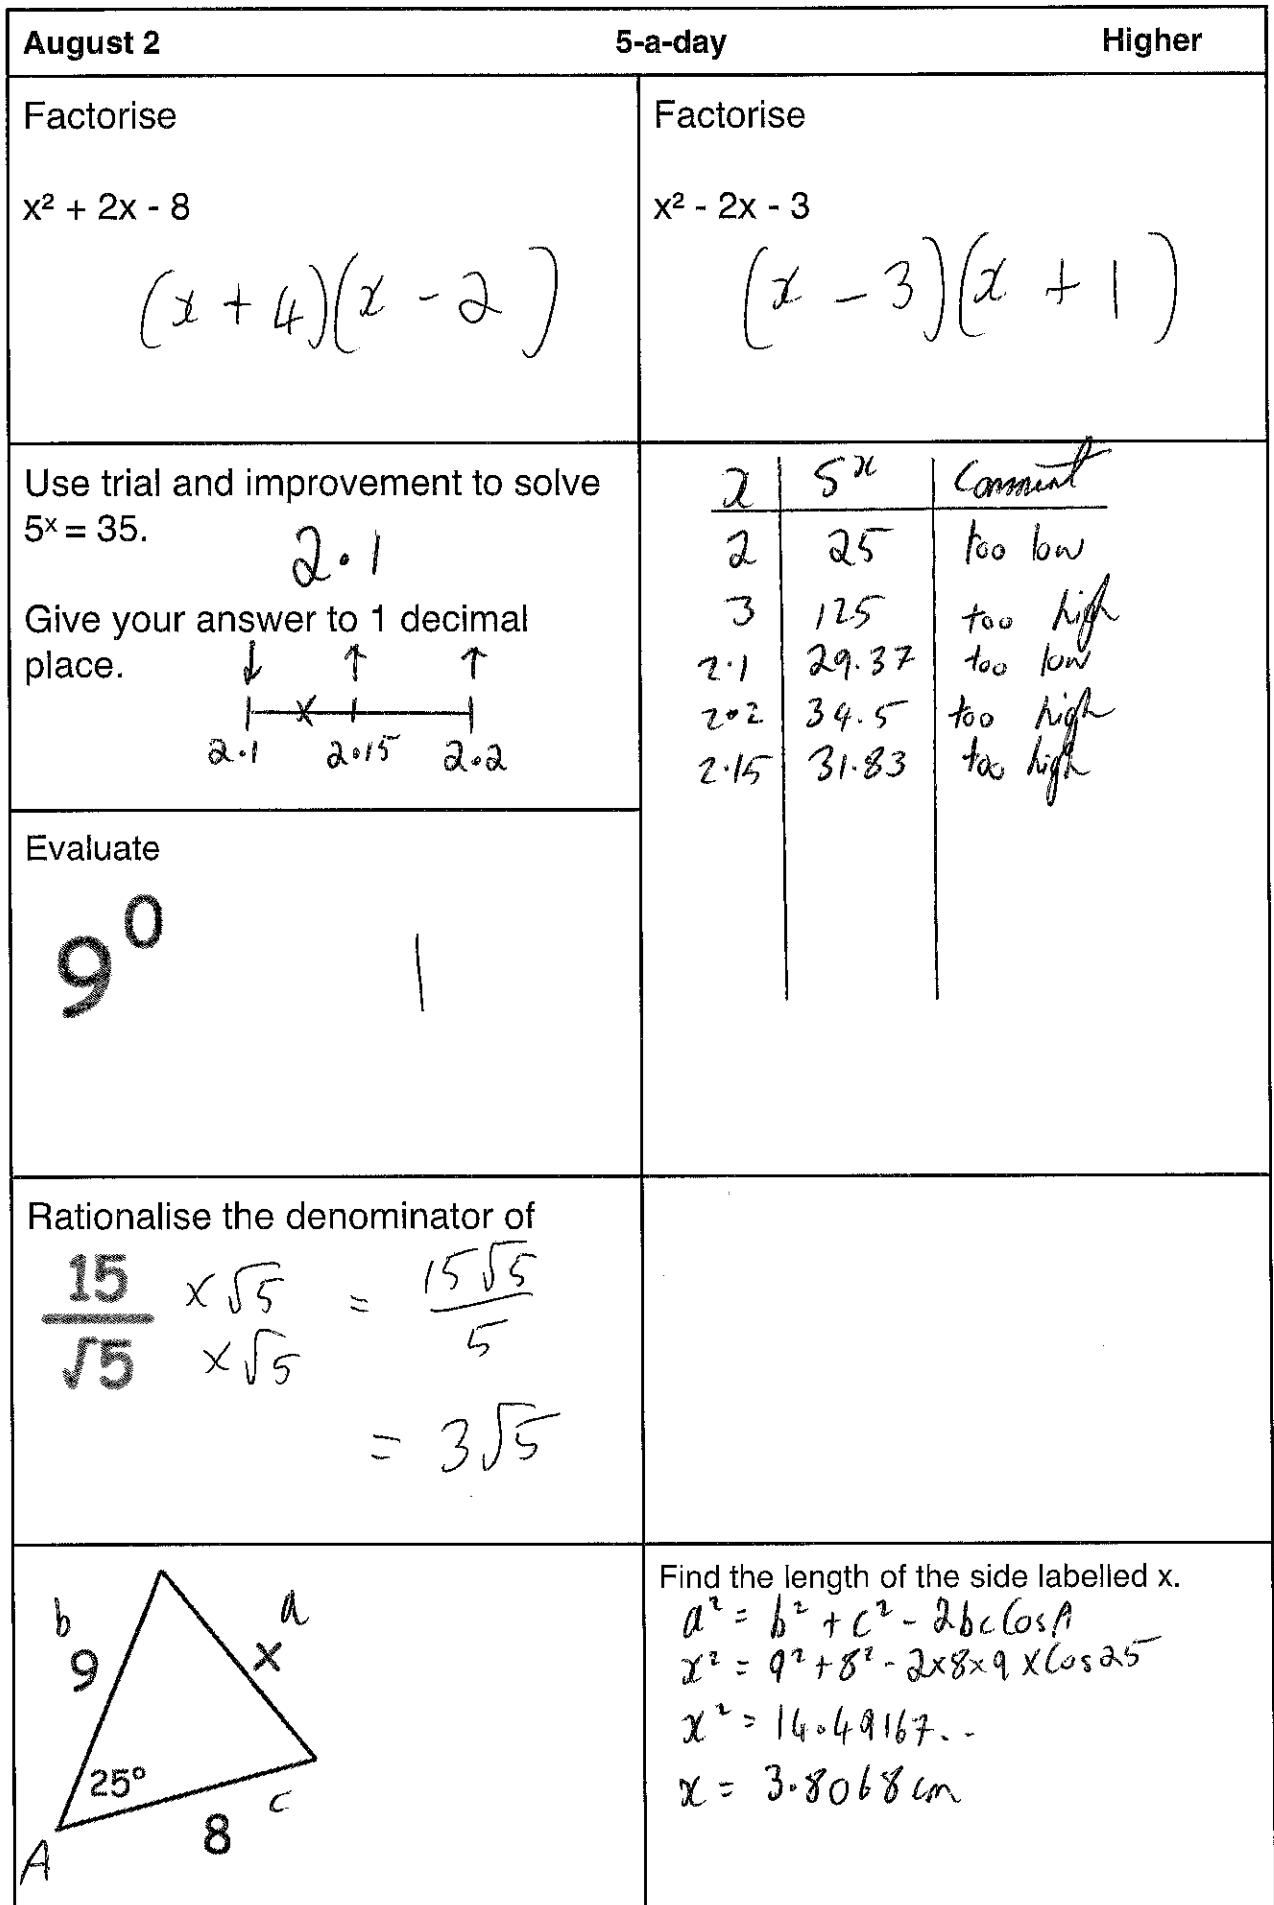 August 2 5-a-day Higher
Factorise
x² + 2x - 8
(x + 4)(x - 2)
Factorise
x² - 2x - 3
(x - 3)(x + 1)
Use trial and improvement to solve
5ˣ = 35.
2.1
Give your answer to 1 decimal
place.
2.1 2.15 2.2
x 5ˣ Comment
2 25 too low
3 125 too high
2.1 29.37 too low
2.2 34.5 too high
2.15 31.83 too high
Evaluate
9⁰ 1
Rationalise the denominator of
15/√5 ×√5/×√5 = 15√5/5
= 3√5
b
9
a
x
25°
c
8
A
Find the length of the side labelled x.
a² = b² + c² - 2bc Cos A
x² = 9² + 8² - 2×8×9 × Cos 25
x² = 14.49167..
x = 3.8068 cm